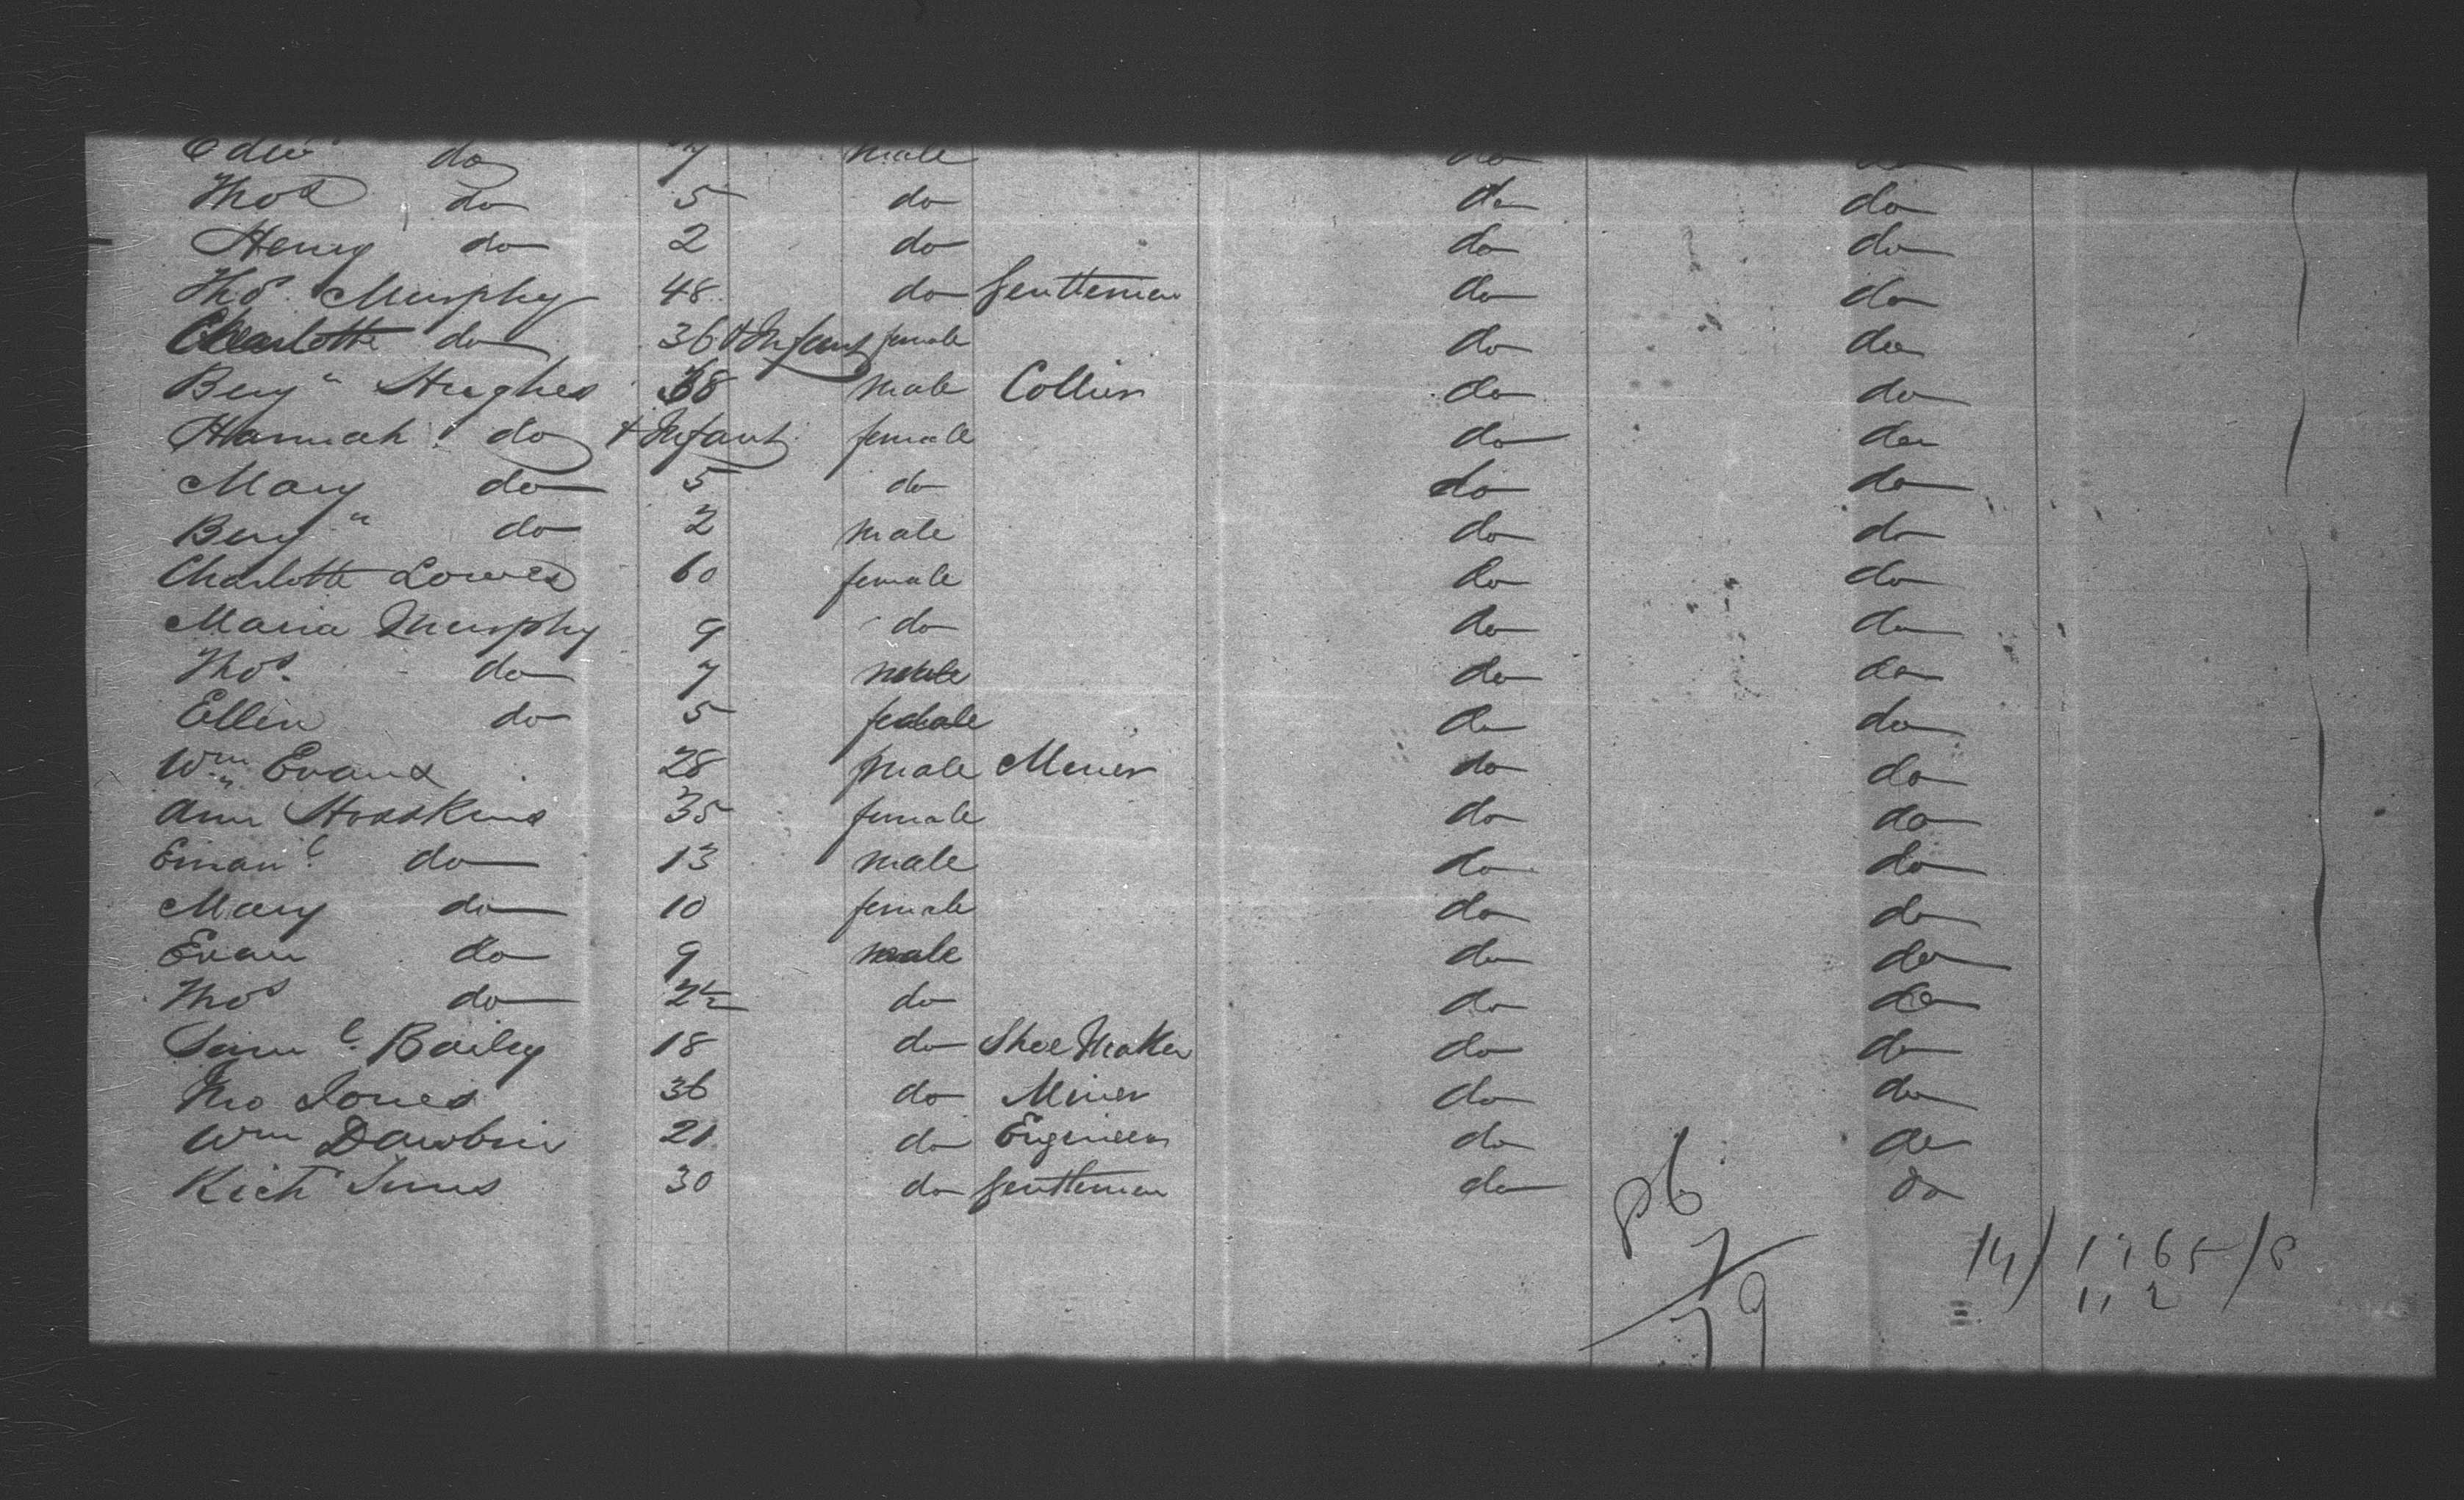 Edwd do 7 male do do
Thos do 5 do do do
Henry do 2 do do do
Thos. Murphy 48 do Gentleman do do
Charlotte do 36 + Infant female do do
Benjn Hughes 38 male Collier do do
Hannah do + Infant female do do
Mary do 5 do do do
Benjn do 2 male do do
Charlotte Lowes 60 female do do
Maria Murphy 9 do do do
Thos. do 7 male do do
Ellen do 5 female do do
Wm Evans 28 male Miner do do
Ann Hosskins 35 female do do
Emanl do 13 male do do
Mary do 10 female do do
Evan do 9 male do do
Thos do 2½ do do do
Saml. Bailey 18 do Shoe Maker do do
Tho Jones 36 do Miner do do
Wm Dawbin 21 do Engineer do do
Richd 30 do Gentleman do do
86
7
79
14) 1265 /8
112